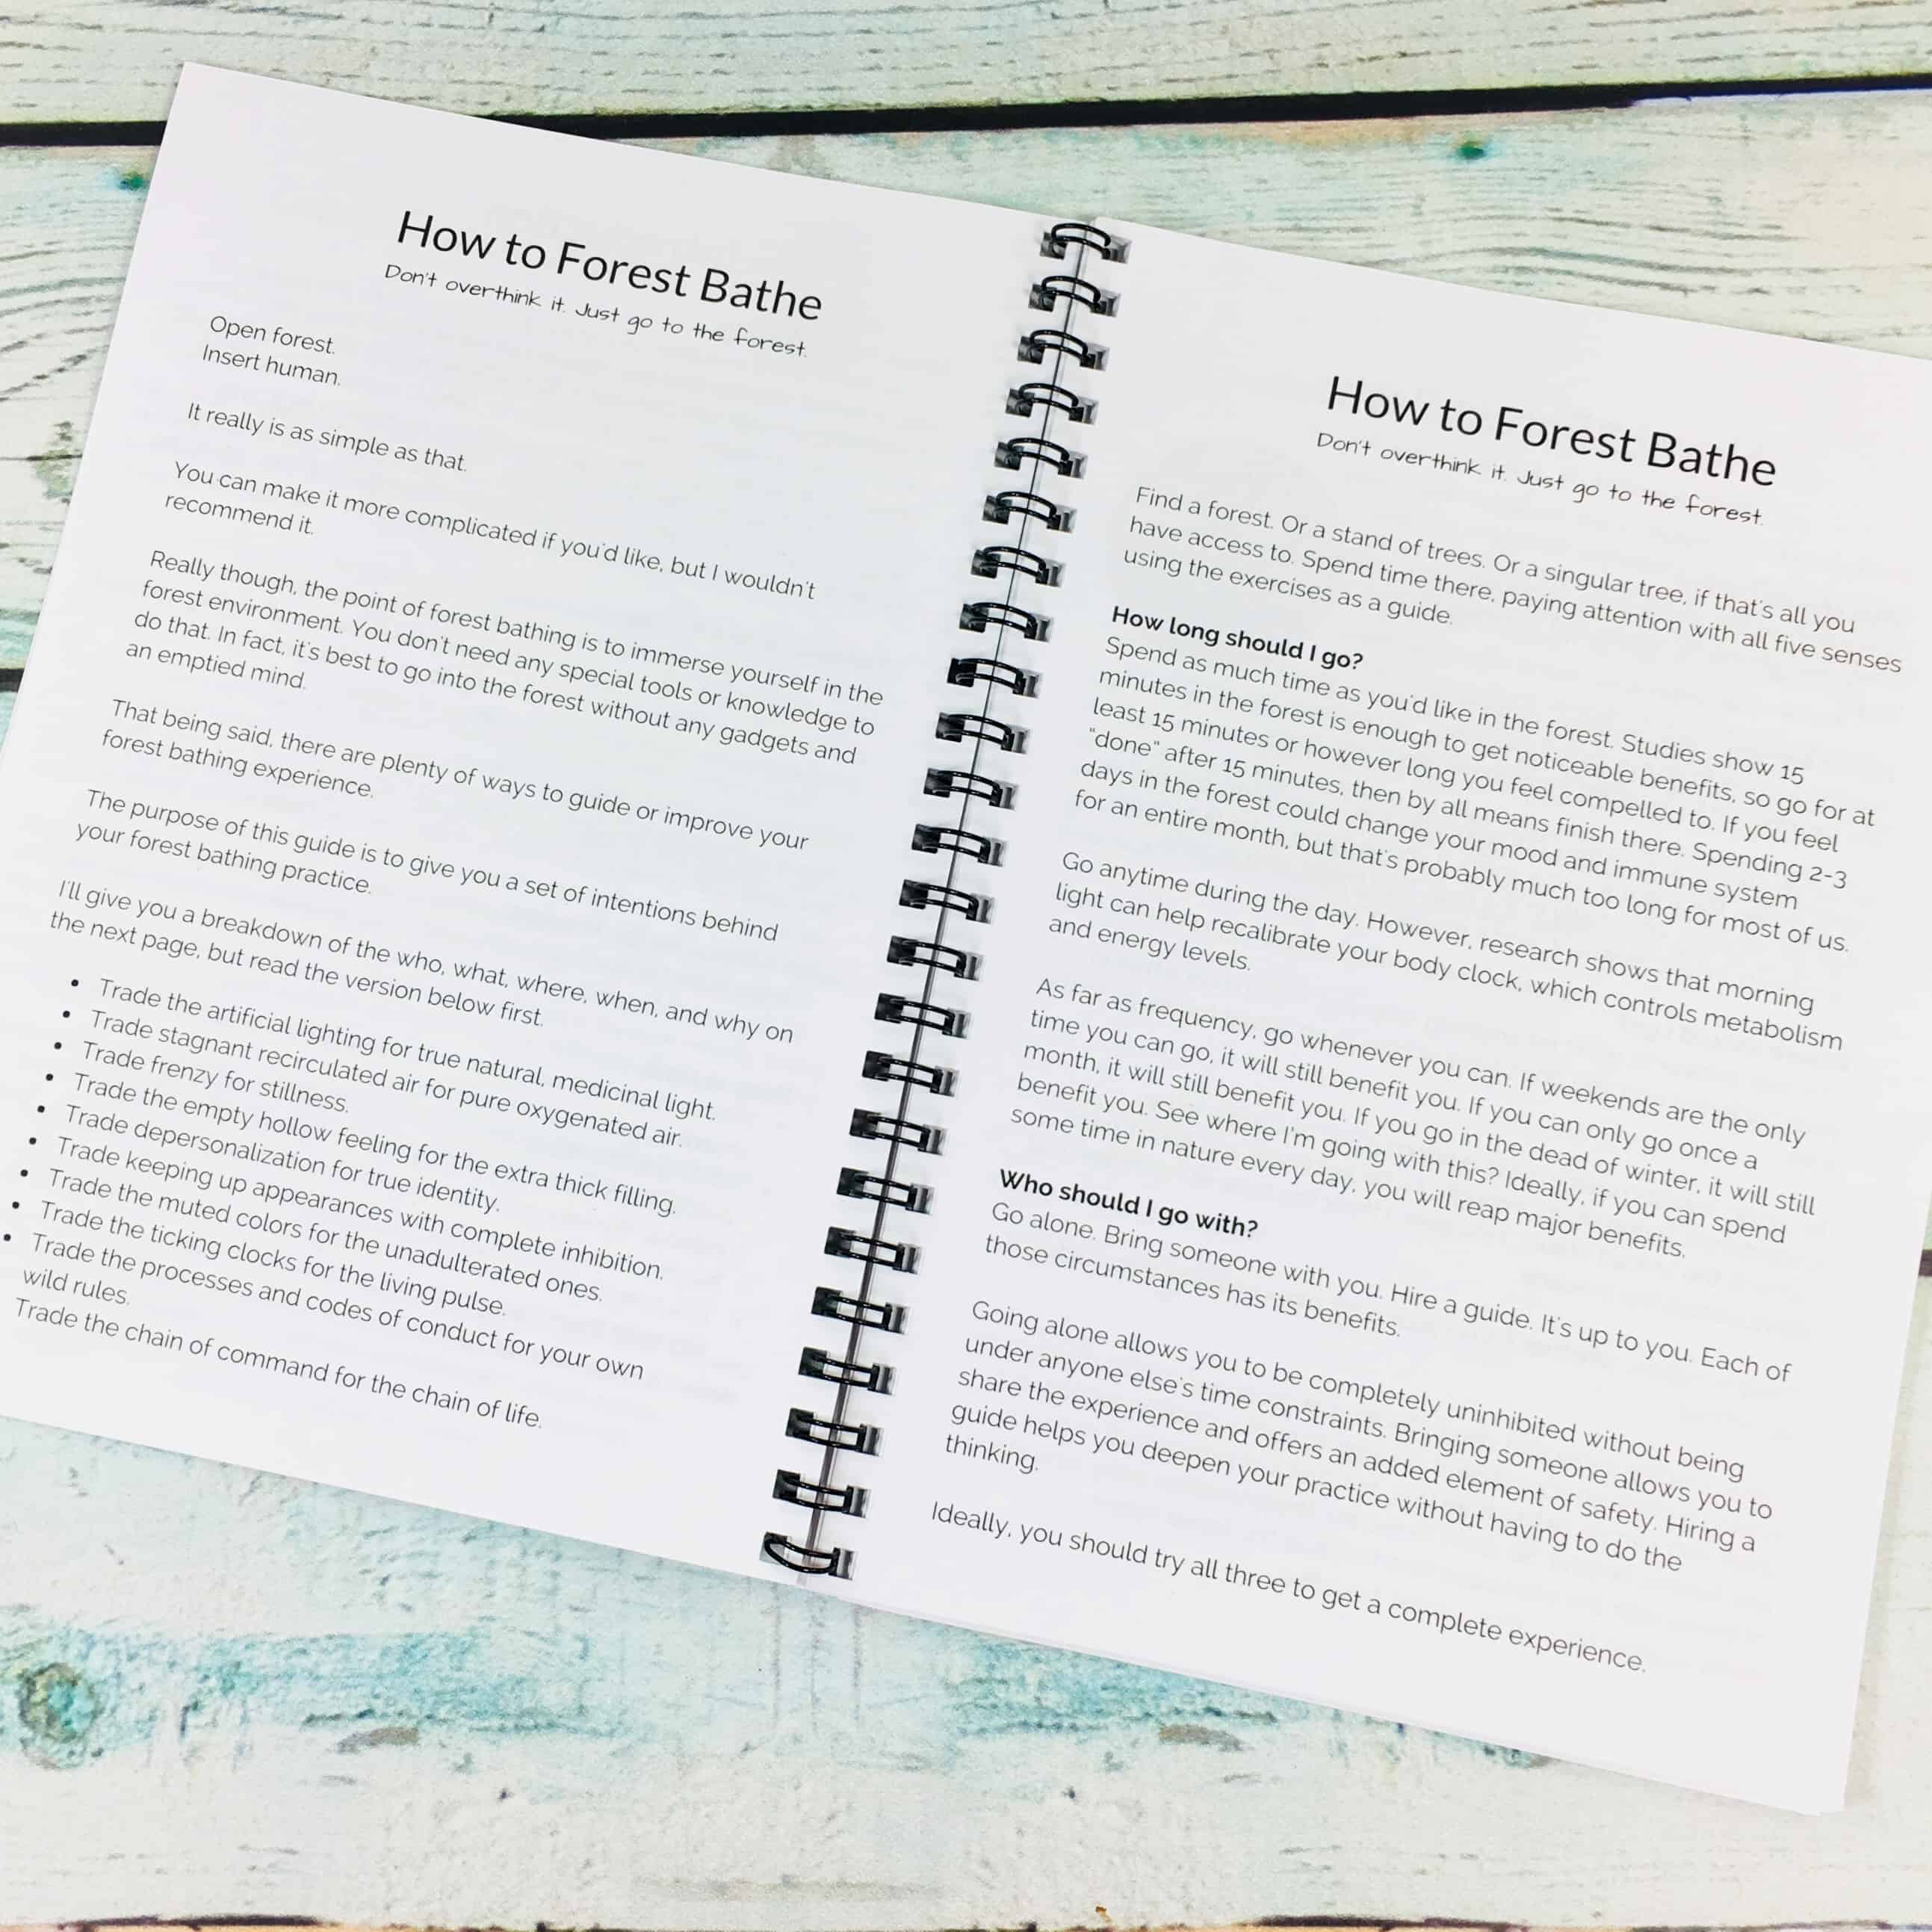 How to Forest Bathe
Don't overthink it. Just go to the forest.
Open forest.
Insert human.
It really is as simple as that.
You can make it more complicated if you'd like, but I wouldn't
recommend it.
Really though, the point of forest bathing is to immerse yourself in the
forest environment. You don't need any special tools or knowledge to
do that. In fact, it's best to go into the forest without any gadgets and
an emptied mind.
That being said, there are plenty of ways to guide or improve your
forest bathing experience.
The purpose of this guide is to give you a set of intentions behind
your forest bathing practice.
I'll give you a breakdown of the who, what, where, when, and why on
the next page, but read the version below first.
• Trade the artificial lighting for true natural, medicinal light.
• Trade stagnant recirculated air for pure oxygenated air.
• Trade frenzy for stillness.
• Trade the empty hollow feeling for the extra thick filling.
• Trade depersonalization for true identity.
• Trade keeping up appearances with complete inhibition.
• Trade the muted colors for the unadulterated ones.
• Trade the ticking clocks for the living pulse.
• Trade the processes and codes of conduct for your own
wild rules.
Trade the chain of command for the chain of life.
How to Forest Bathe
Don't overthink it. Just go to the forest.
Find a forest. Or a stand of trees. Or a singular tree, if that's all you
have access to. Spend time there, paying attention with all five senses
using the exercises as a guide.
How long should I go?
Spend as much time as you'd like in the forest. Studies show 15
minutes in the forest is enough to get noticeable benefits, so go for at
least 15 minutes or however long you feel compelled to. If you feel
"done" after 15 minutes, then by all means finish there. Spending 2-3
days in the forest could change your mood and immune system
for an entire month, but that's probably much too long for most of us.
Go anytime during the day. However, research shows that morning
light can help recalibrate your body clock, which controls metabolism
and energy levels.
As far as frequency, go whenever you can. If weekends are the only
time you can go, it will still benefit you. If you can only go once a
month, it will still benefit you. If you go in the dead of winter, it will still
benefit you. See where I'm going with this? Ideally, if you can spend
some time in nature every day, you will reap major benefits.
Who should I go with?
Go alone. Bring someone with you. Hire a guide. It's up to you. Each of
those circumstances has its benefits.
Going alone allows you to be completely uninhibited without being
under anyone else's time constraints. Bringing someone allows you to
share the experience and offers an added element of safety. Hiring a
guide helps you deepen your practice without having to do the
thinking.
Ideally, you should try all three to get a complete experience.